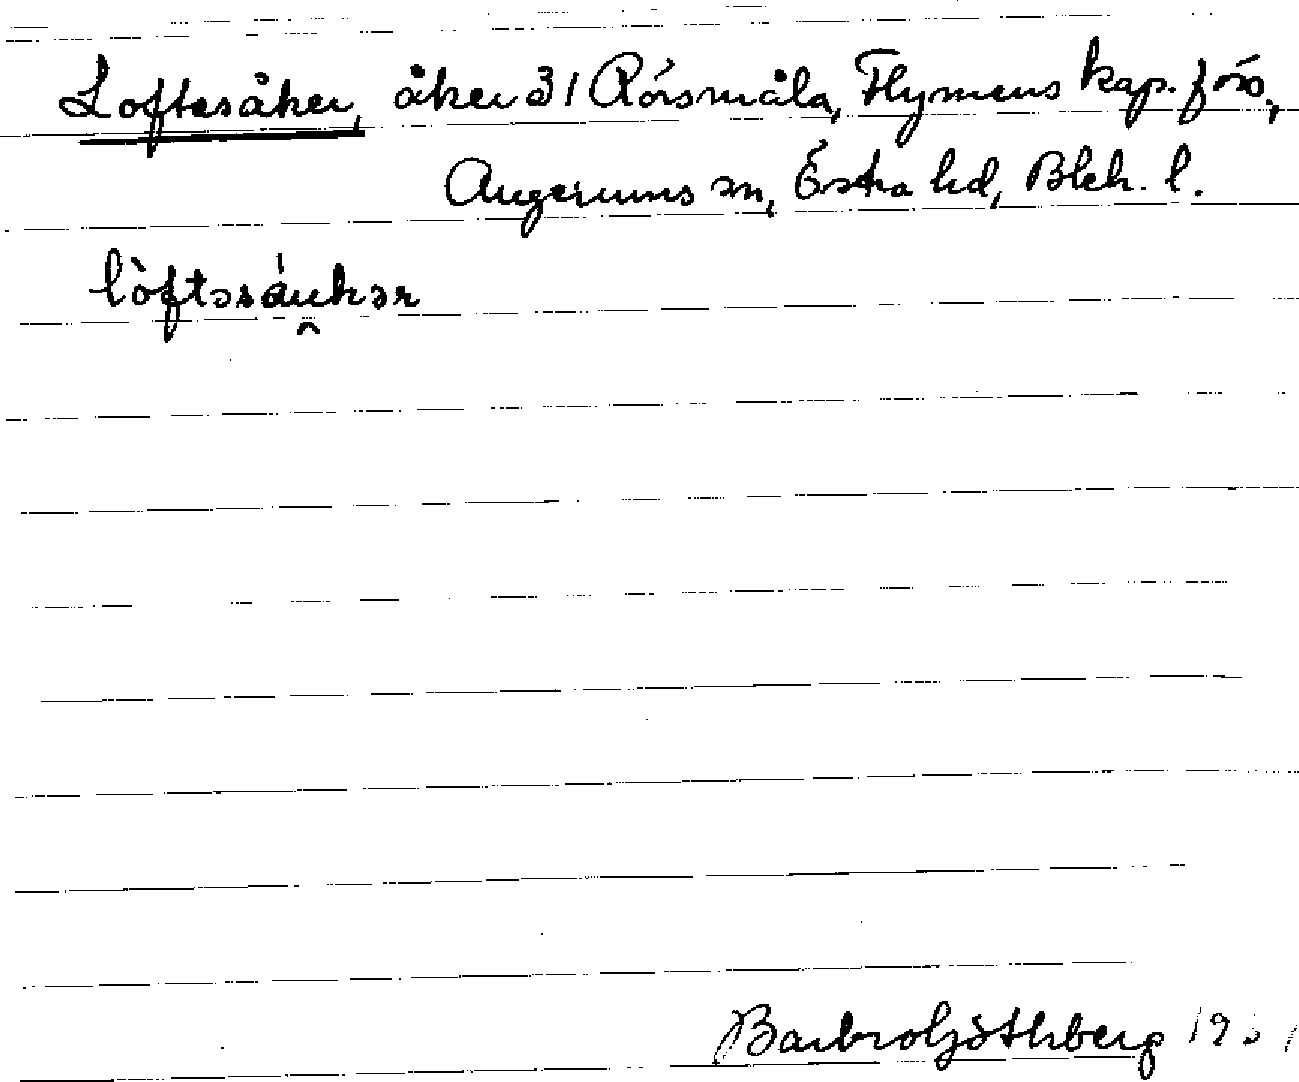 Loftesåker, åker å 1 Rörsmåla, Flymens kap. förs.,
Augerums sn, Östra hd, Blek. l.
lòftəsáu̯kər
Barbro Götherberg